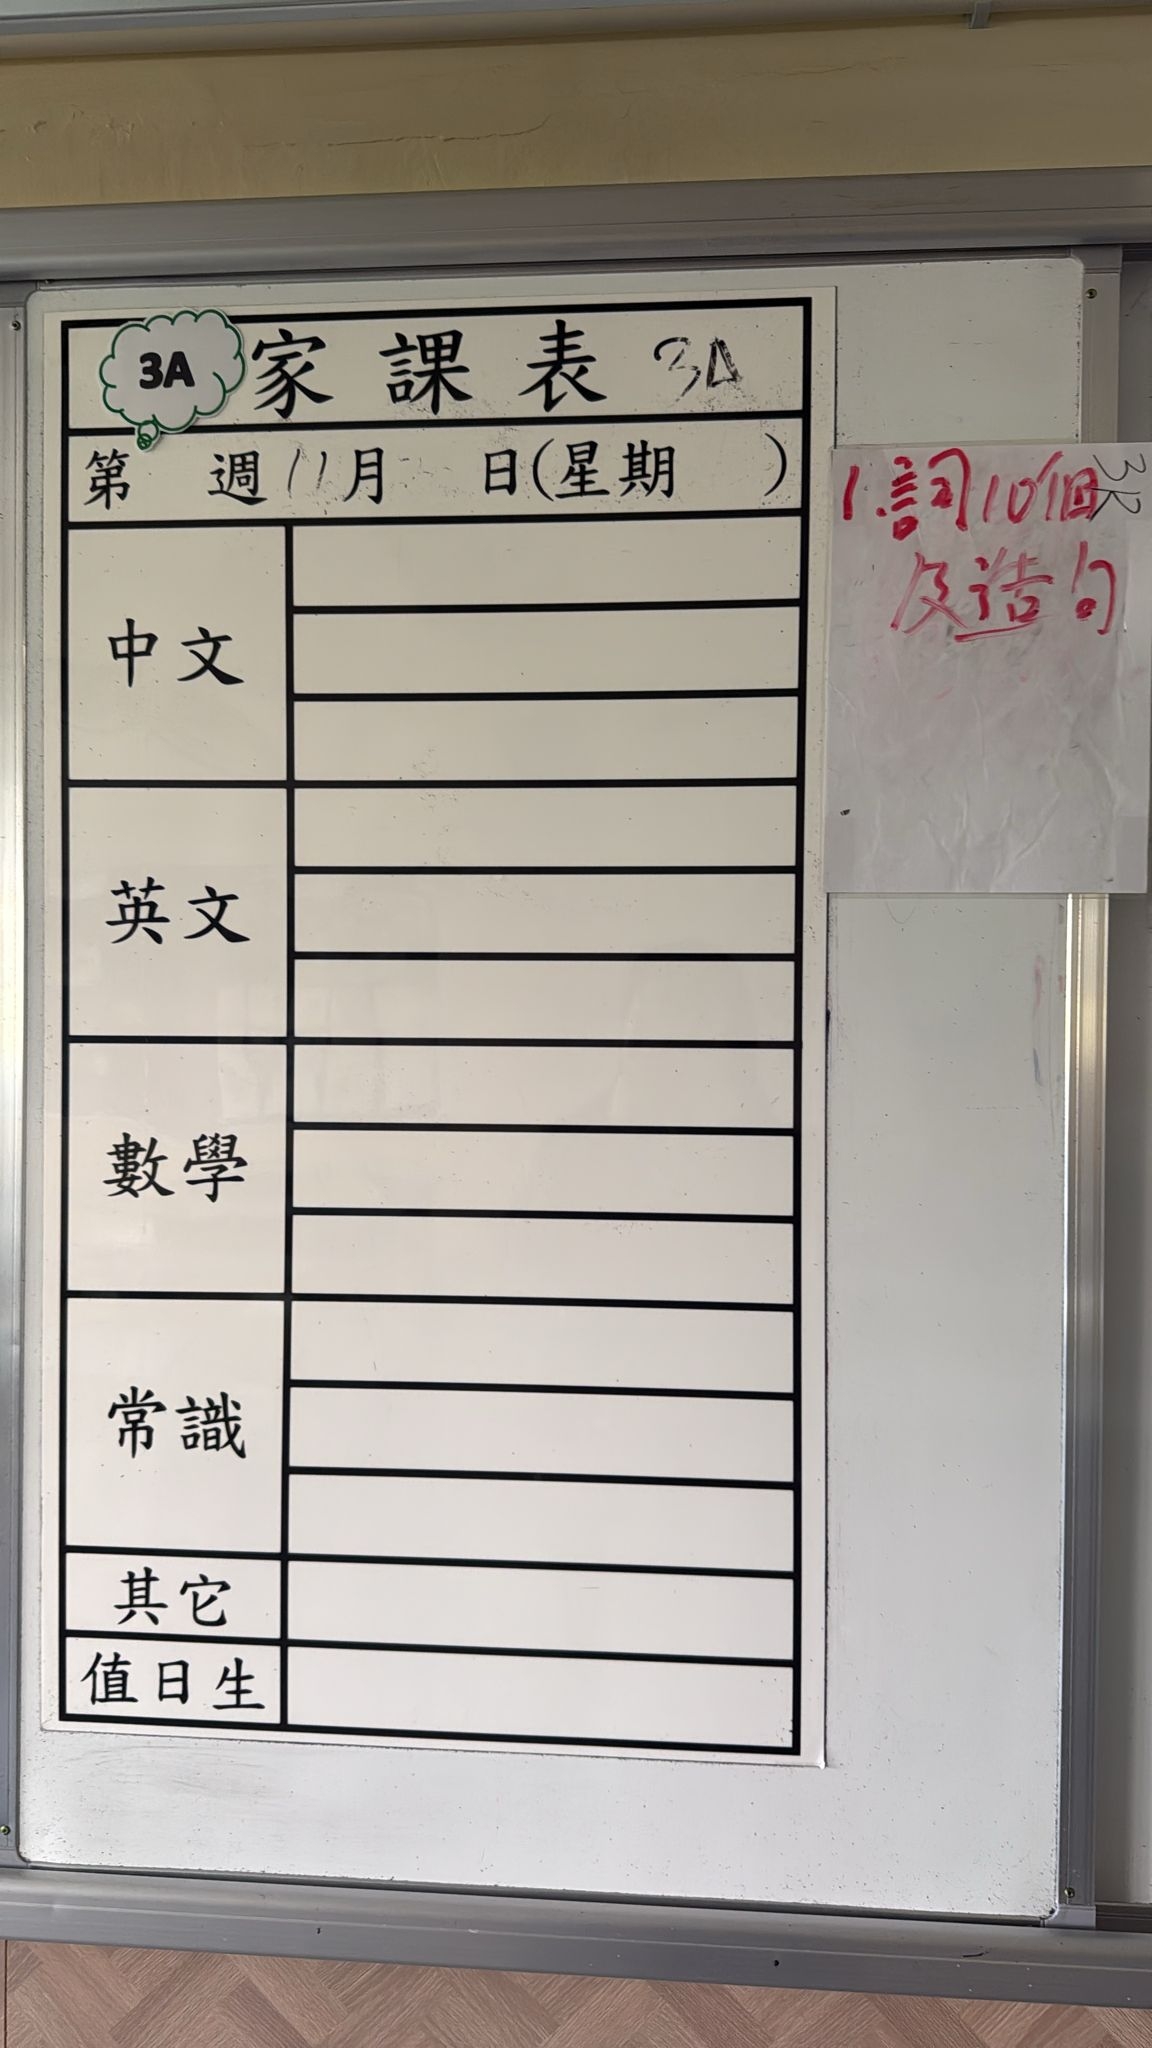 3A 家課表 3A
第 週 11月 日(星期 )
中文
英文
數學
常識
其它
值日生
1.詞10個
及造句